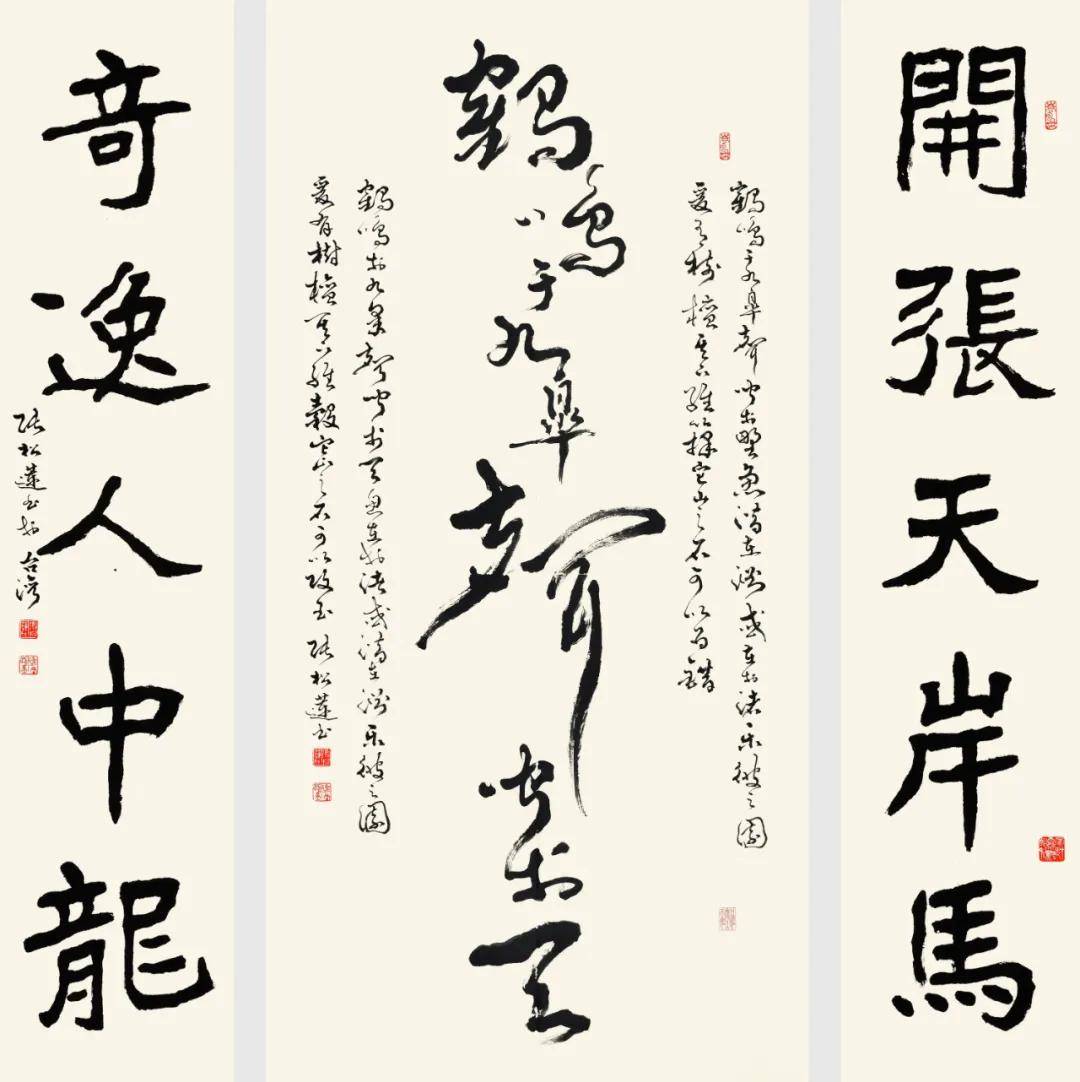 開張天岸馬
鶴鳴于九皐聲聞於野魚潛在淵或在於渚樂彼之園
爰有樹檀其下維蘀它山之石可以為錯
鶴鳴于九皐聲聞於天
鶴鳴於九皋聲聞於天魚在於渚或潛在淵樂彼之園
爰有樹檀其下維穀它山之石可以攻玉 張松蓮书
奇逸人中龍
張松蓮书於台灣